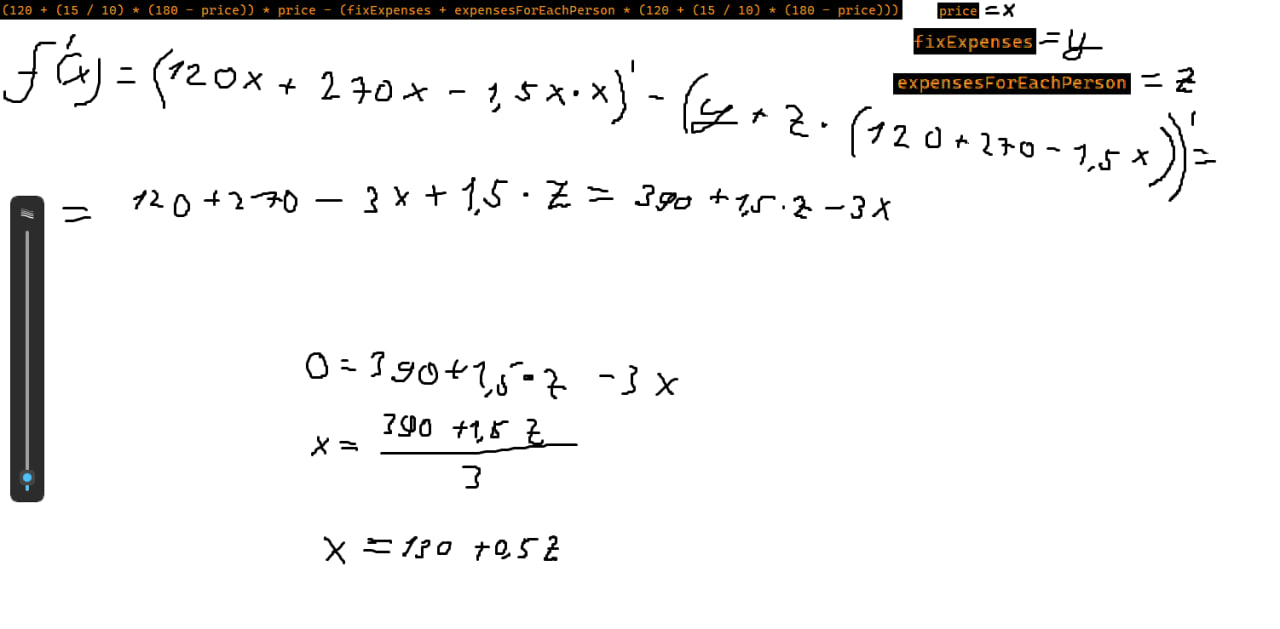 (120 + (15 / 10) * (180 - price)) * price - (fixExpenses + expensesForEachPerson * (120 + (15 / 10) * (180 - price)))
price = x
fixExpenses = y
expensesForEachPerson = z
f'(x) = (120x + 270x - 1,5x·x)' - (y + z · (120 + 270 - 1,5x))' =
= 120 + 270 - 3x + 1,5 · z = 390 + 1,5 · z - 3x
0 = 390 + 1,5 · z - 3x
x = 390 + 1,5 z
3
x = 130 + 0,5 z